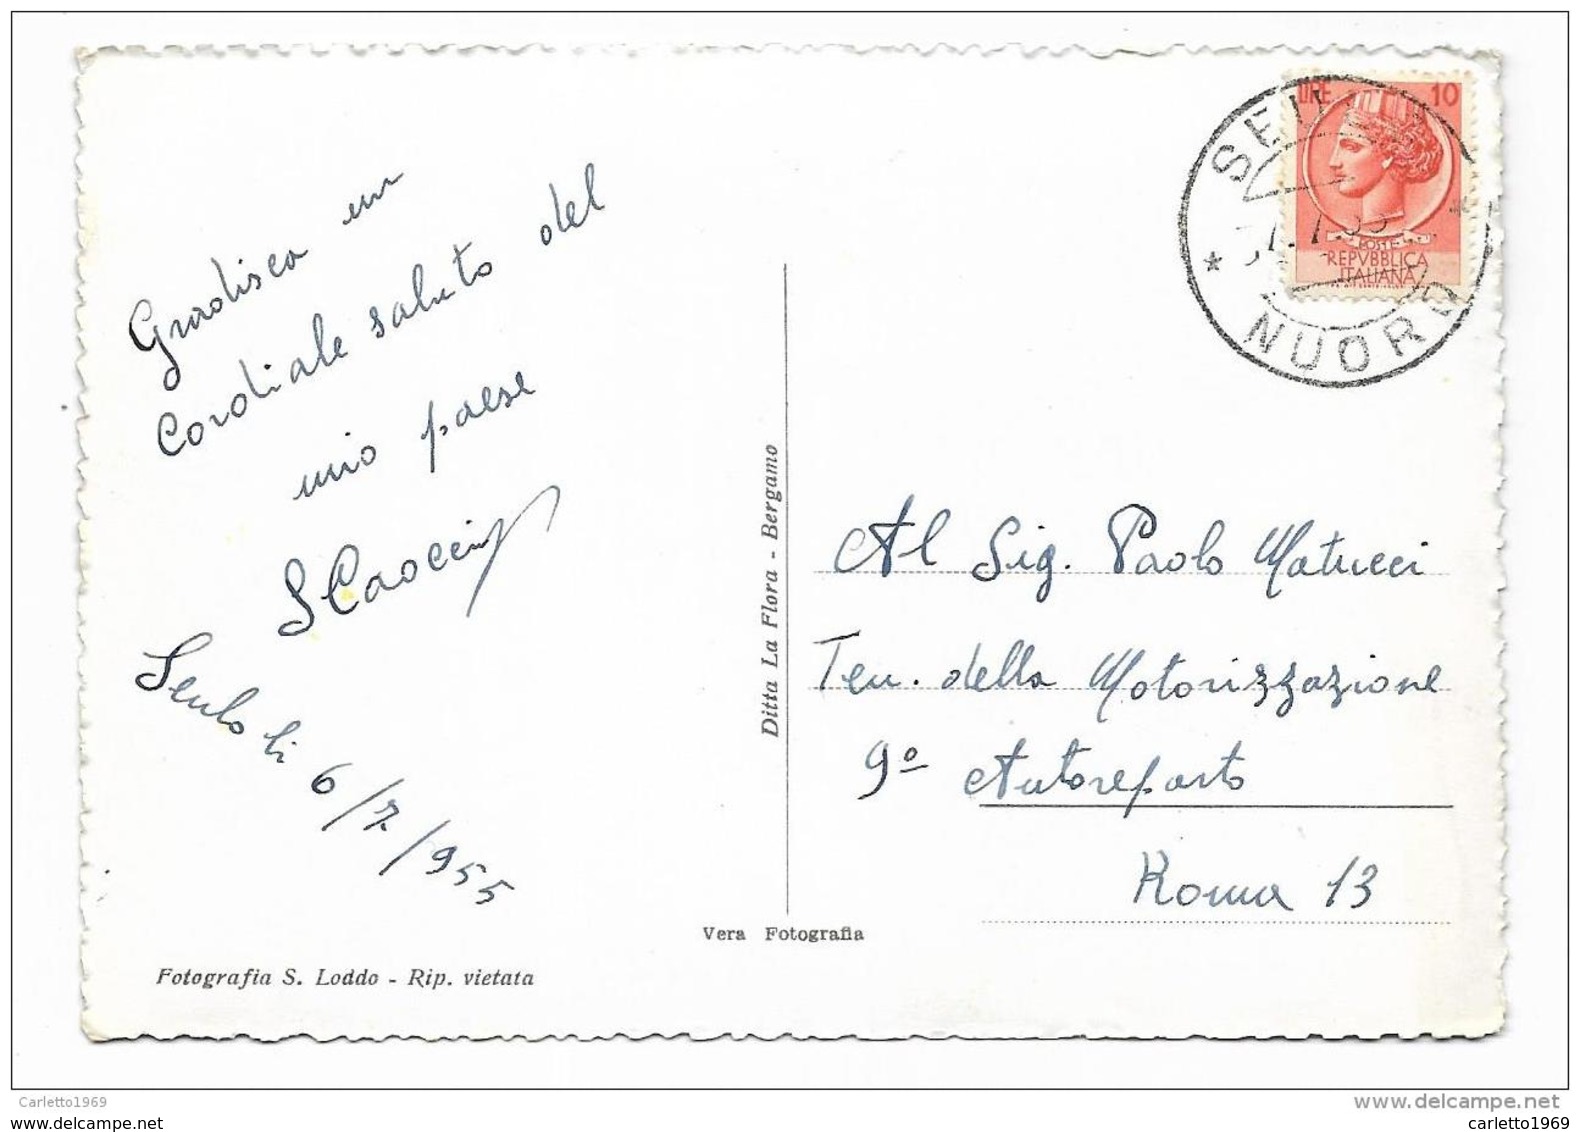 Gradisca un
Cordiale saluto del
mio paese
Seulo li 6/7/955
Fotografia S. Loddo - Rip. vietata
Ditta La Flora - Bergamo
Vera Fotografia
LIRE 10
POSTE
REPVBBLICA
ITALIANA
SEU
* *
NUORO
Al Sig. Paolo Matucci
Ten. della Motorizzazione
9º Autoreparto
Roma 13
Carletto1969
www.delcampe.net
carletto1969